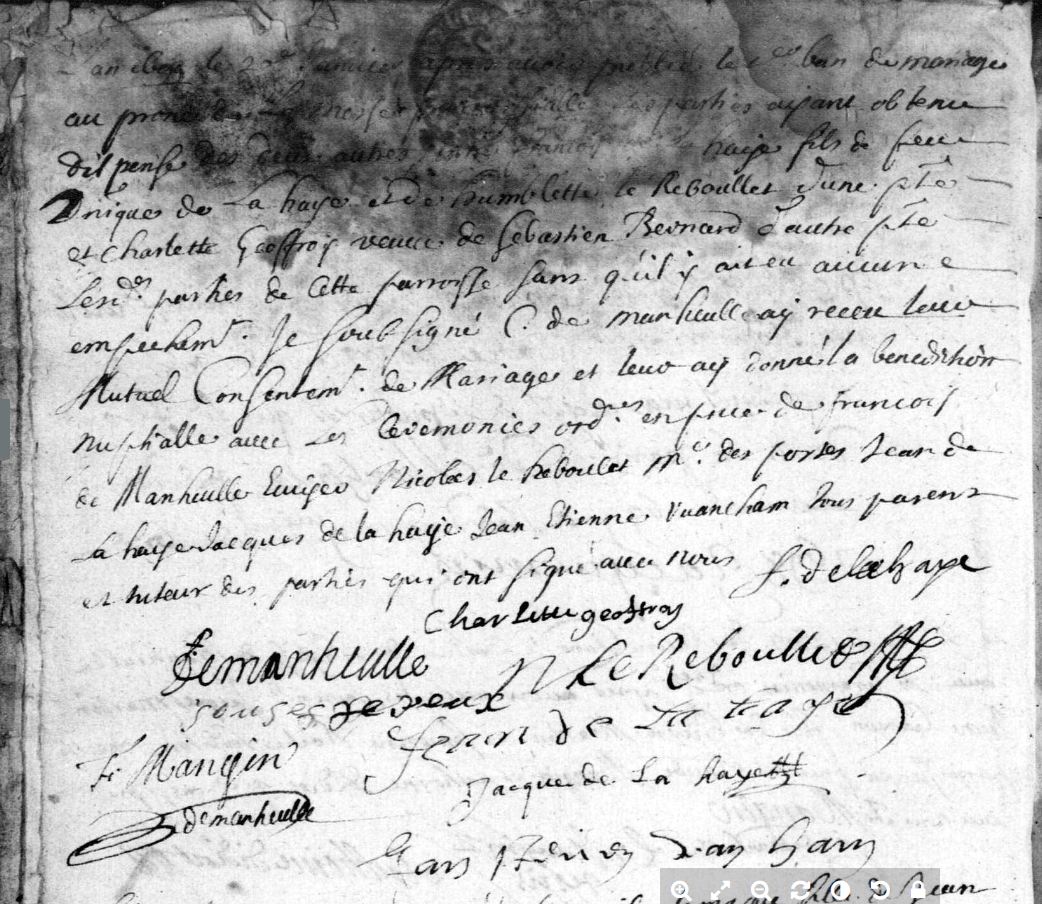 le 22e Janvier apres avoir publié le 1er ban de mariage
au prone de la messe les parties ayant obtenu
dispense des deux autres haye fils de feue
de La haye et de humblette le Reboullet d'une pte
et Charlette Geoffroy veuve de Sebastien Bernard d'autre pte
Lesd. parties de Cette parroisse sans qu'il y ait eu aucune
empechemt. Je soubsigné C. de manheulle ay receu leur
Mutuel Consentemt. de Mariage et leur ay donné la benediction
nuptialle avec Les Ceremonies ord.res en pnce de francois
de Manheulle Nicolas le Reboulet me. des postes Jean de
La haye Jacques de la haye Jean Etienne Vuancham tous parens
et tuteur des parties qui ont signé avec nous f. delahaye
Charlette geoffroy
demanheulle N Le Reboullet
Jean de La Haye
F. Mangin
Jacque de La haye
demanheulle
Jan
de Jean